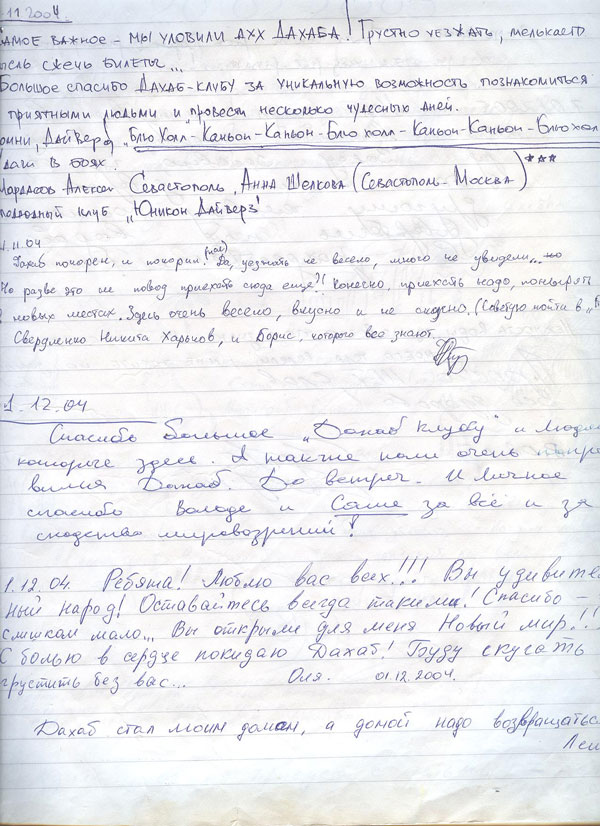 .11.2004
САМОЕ ВАЖНОЕ – МЫ УЛОВИЛИ ДУХ ДАХАБА! ГРУСТНО УЕЗЖАТЬ, МЕЛЬКАЕТ
МЫСЛЬ СЖЕЧЬ БИЛЕТЫ...
БОЛЬШОЕ СПАСИБО ДАХАБ-КЛУБУ ЗА УНИКАЛЬНУЮ ВОЗМОЖНОСТЬ ПОЗНАКОМИТЬСЯ
ПРИЯТНЫМИ ЛЮДЬМИ И ПРОВЕСТИ НЕСКОЛЬКО ЧУДЕСНЫХ ДНЕЙ.
ДАЙВЕР „Блю Холл-Каньон-Каньон-Блю холл-Каньон-Каньон-Блю хол
В БОЯХ.
АЛЕКСЕЙ СЕВАСТОПОЛЬ, АННА ШЕЛКОВА (СЕВАСТОПОЛЬ-МОСКВА)***
ПОДВОДНЫЙ КЛУБ „ЮНИКОН ДАЙВЕРЗ"
1.11.04
Дахаб покорен, и покорил (нас)! Да, уезжать не весело, много не увидели... но
Но разве это не повод приехать сюда еще?! Конечно, приехать надо, понырять
в новых местах. Здесь очень весело, вкусно и не скучно. (Советую пойти в
Свердленко Никита Харьков, и Борис, которого все знают
1.12.04
Спасибо большое „Дахаб клубу" и людям
которые здесь. А также нам очень
Дахаб. До встреч. И личное
спасибо Володе и Саше за всё и за
сходство мировозрений!
1.12.04. Ребята! Люблю вас всех!!! Вы удивите
ный народ! Оставайтесь всегда такими! Спасибо –
слишком мало... Вы открыли для меня Новый мир!!
С болью в сердце покидаю Дахаб! Буду скучать
грустить без вас... Оля. 01.12.2004.
Дахаб стал моим домом, а домой надо возвращаться